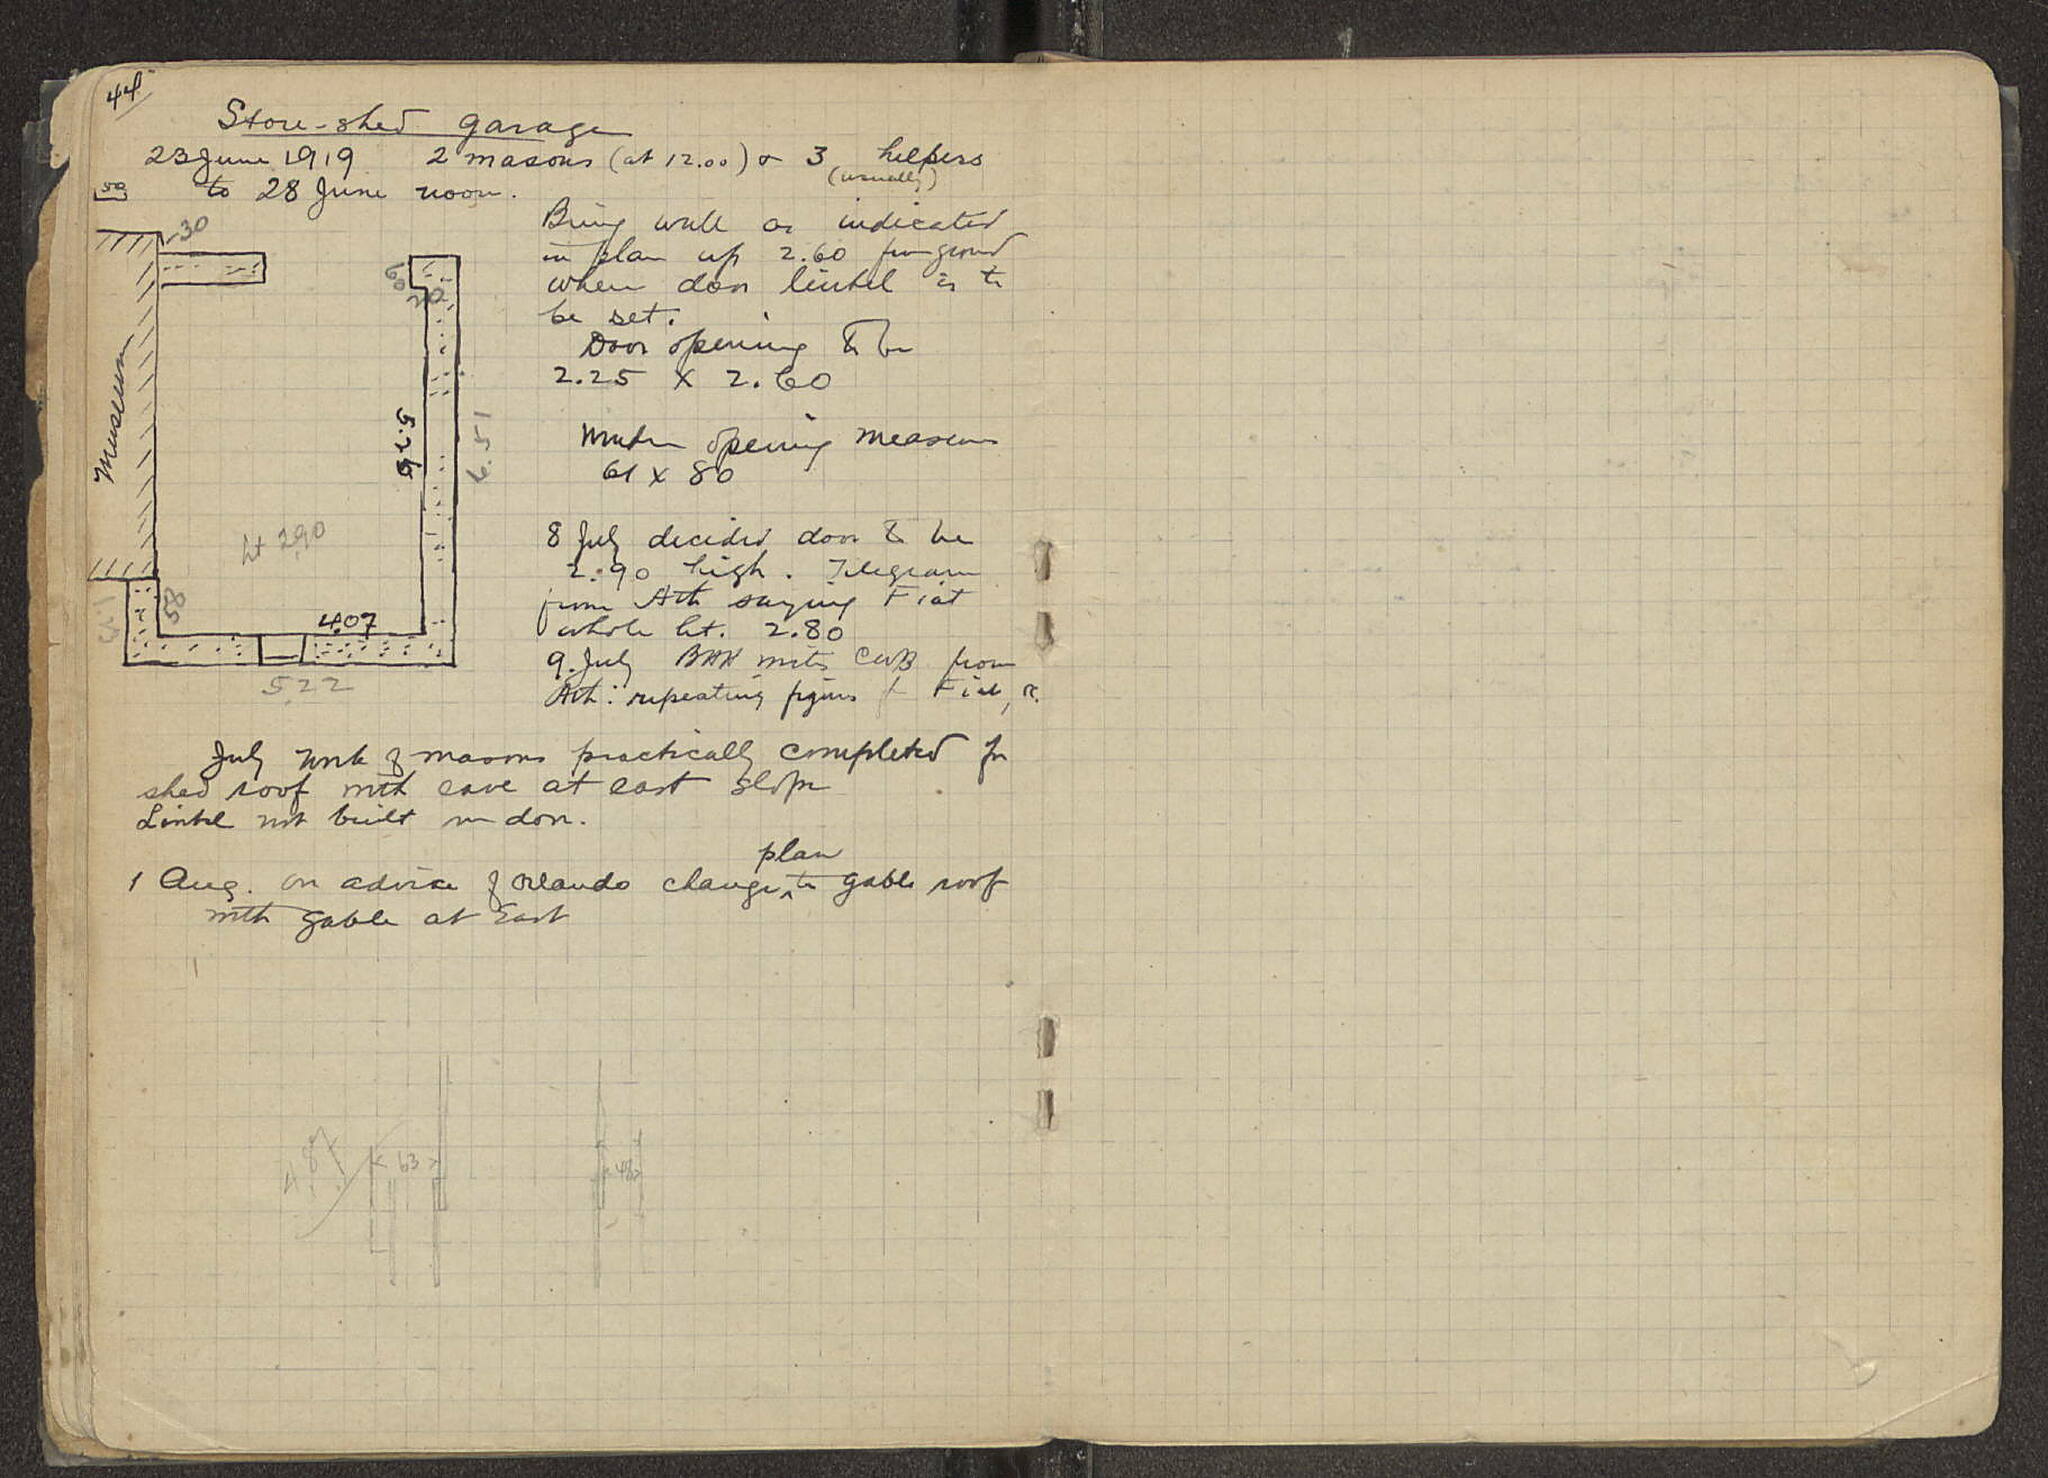 44
Store-shed garage
23 June 1919 2 masons (at 12.00) & 3 helpers
(usually)
50
to 28 June noon.
30
Bring wall as indicated
in plan up 2.60 from ground
when door lintel is to
be set.
Door opening to be
2.25 x 2.60
60
20
Museum
5.26
6.51
Window opening measures
61 x 80
ht 2.90
8 July decided door to be
2.90 high. Telegram
from Ath saying Fiat
whole ht. 2.80
58
4.07
522
9. July BHH writes CWB from
Ath: repeating figures for Fiat,
July work of masons practically completed for
shed roof with eave at east slope
Lintel not built in door.
plan
1 Aug. on advice of Orlando change ‸ to gable roof
with gable at East
4.87
63
48